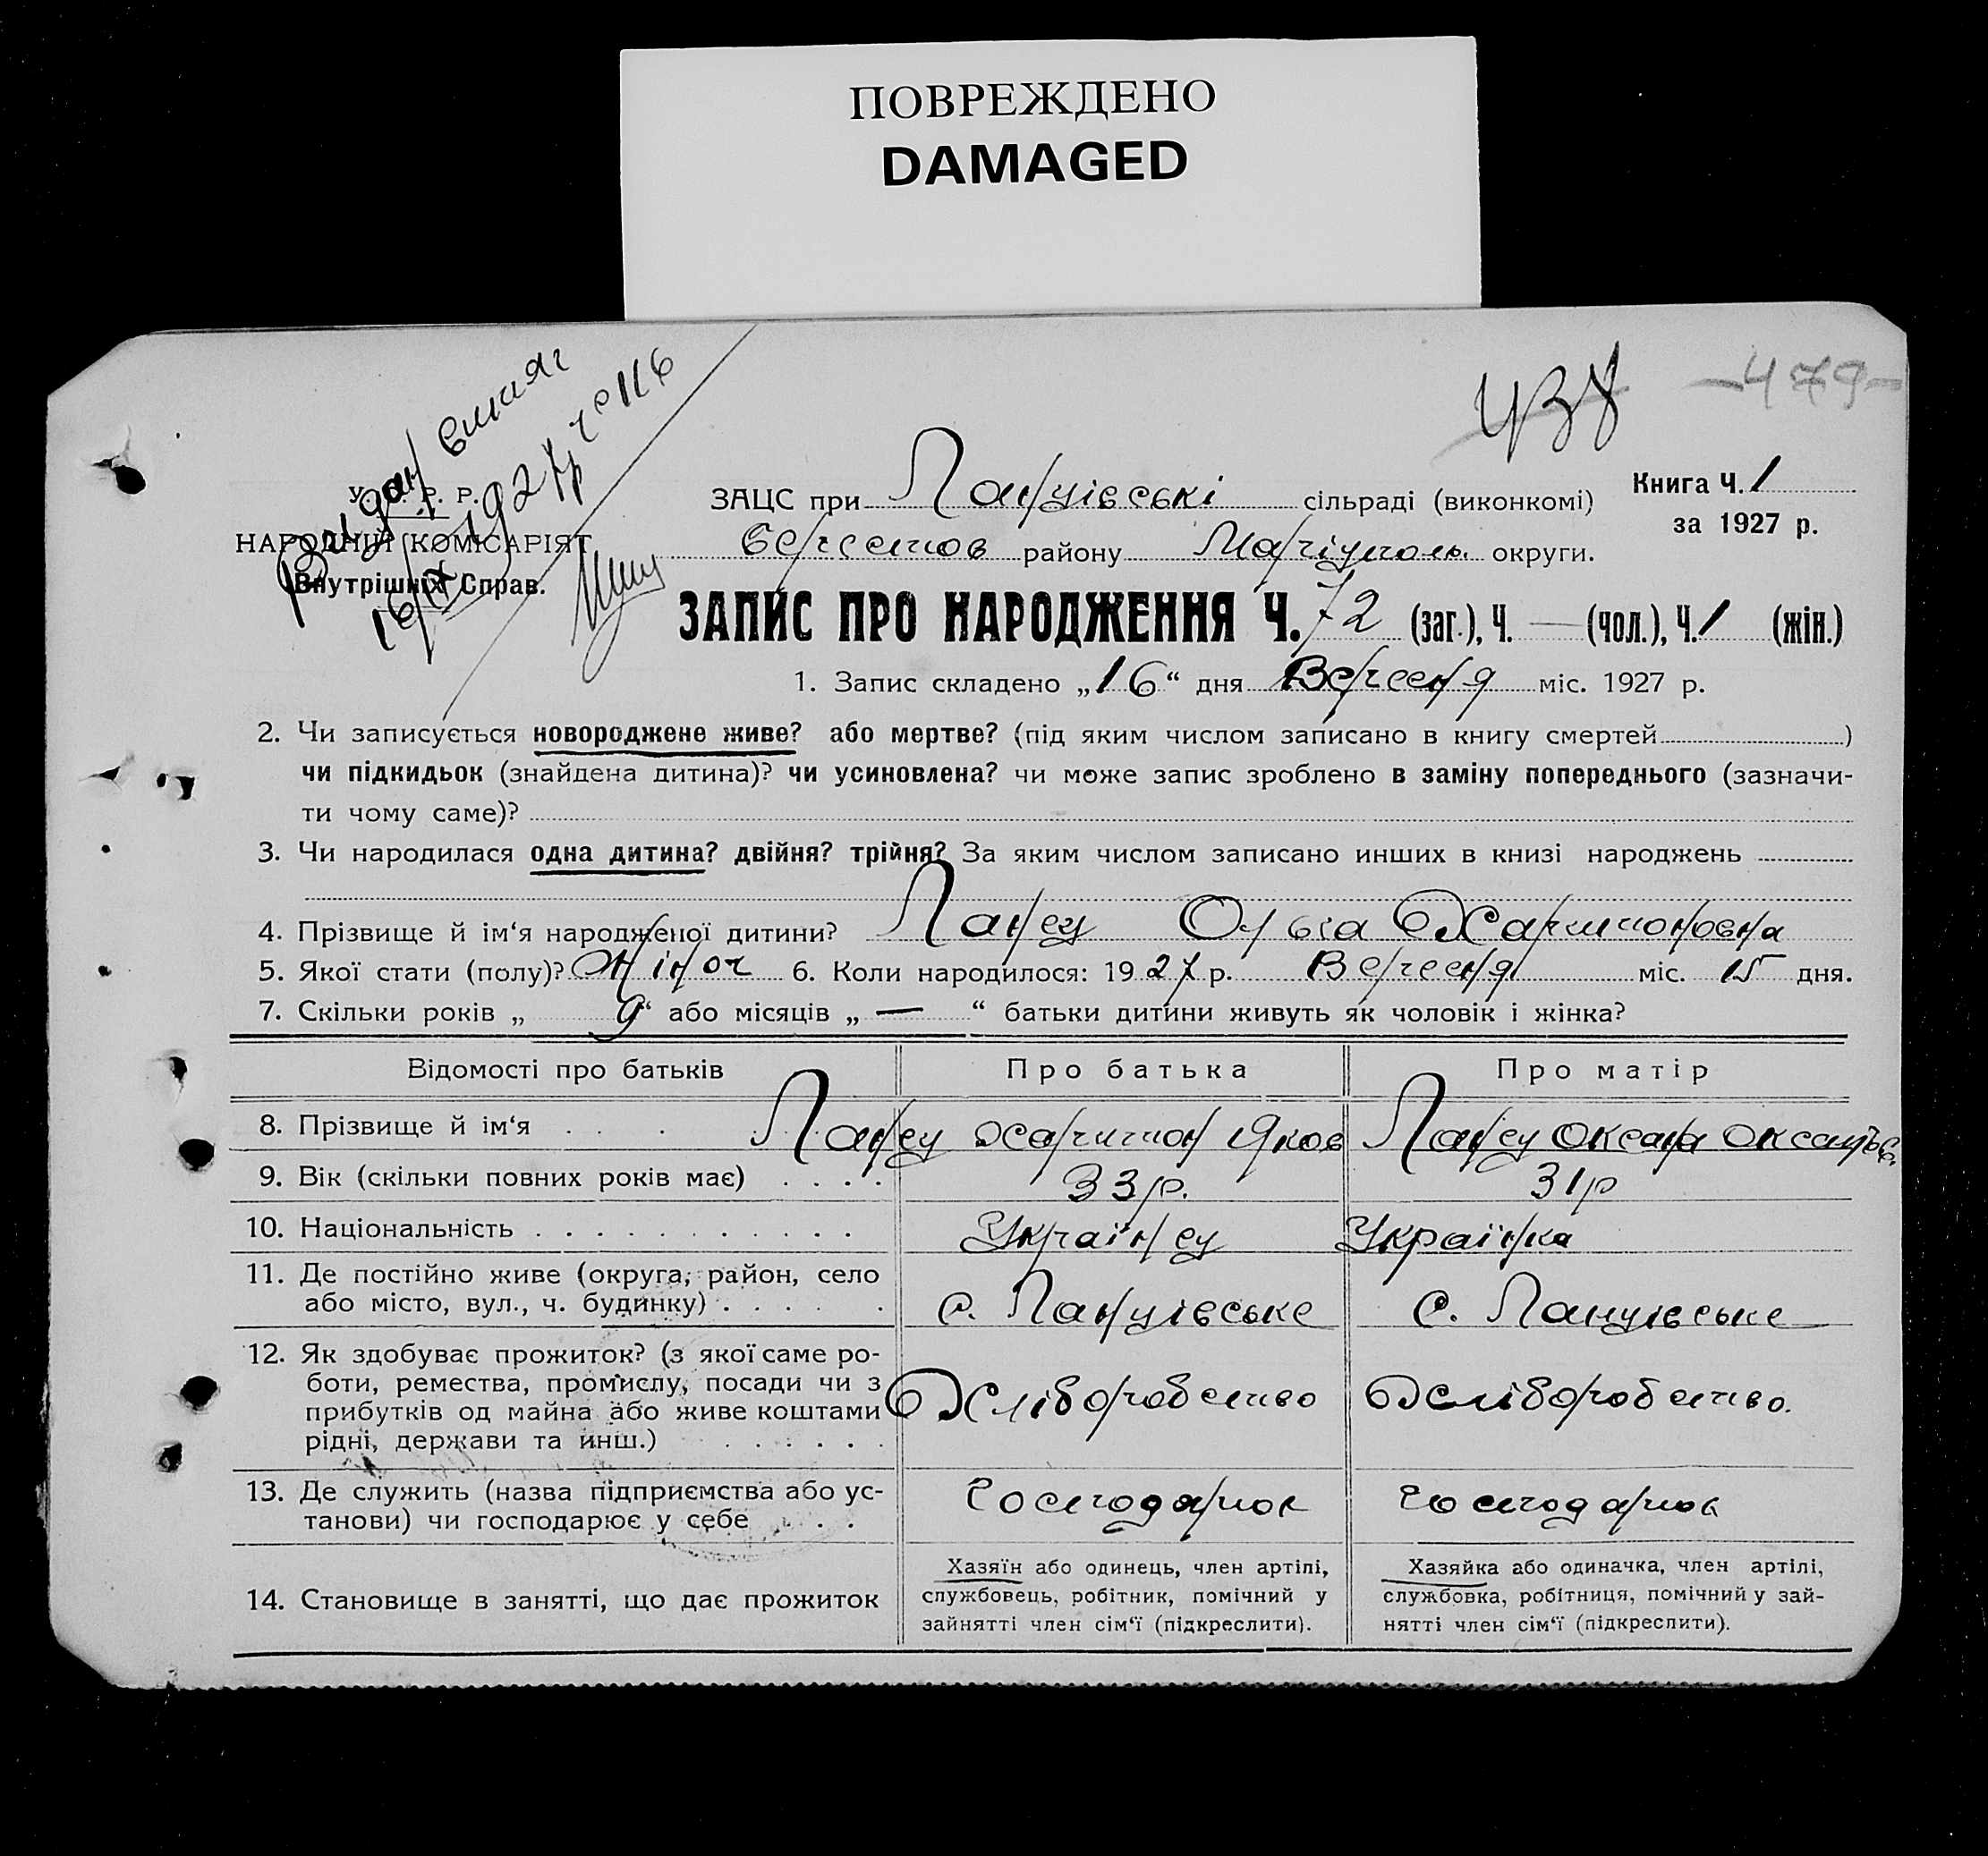 ПОВРЕЖДЕНО
DAMAGED
438
-479-
Видан витяг
16/IX 1927р ч 116
У. С. Р. Р.
НАРОДНІЙ КОМІСАРІЯТ
Внутрішніх Справ.
Книга Ч. 1
за 1927 р.
ЗАЦС при Ланцівські сільраді (виконкомі)
Берестов району Маріуполь. округи.
ЗАПИС ПРО НАРОДЖЕННЯ Ч. 72 (заг.), Ч. — (чол.), Ч. 1 (жін.)
1. Запис складено „16“ дня Вересня міс. 1927 р.
2. Чи записується новороджене живе? або мертве? (під яким числом записано в книгу смертей )
чи підкидьок (знайдена дитина)? чи усиновлена? чи може запис зроблено в заміну попереднього (зазначи-
ти чому саме)?
3. Чи народилася одна дитина? двійня? трійня? За яким числом записано инших в книзі народжень
4. Прізвище й ім‘я народженої дитини? Ланец Ольга Харитоновна
5. Якої стати (полу)? Жіноч 6. Коли народилося: 1927 р. Вересня міс. 15 дня.
7. Скільки років „ 9 “ або місяців „ — “ батьки дитини живуть як чоловік і жінка?
Відомості про батьків Про батька Про матір
8. Прізвище й ім‘я . . . . Ланец Харитон Яков Ланец Оксана
9. Вік (скільки повних років має) . . . . 33 р. 31 р
10. Національність . . . . . . . . . . . Українец Українка
11. Де постійно живе (округа, район, село
або місто, вул., ч. будинку) . . . . . с. Ланцівське с. Ланцівське
12. Як здобуває прожиток? (з якої саме ро-
боти, ремества, промислу, посади чи з
прибутків од майна або живе коштами
рідні, держави та инш.) . . . . . . Хліборобство Хліборобство.
13. Де служить (назва підприємства або ус-
танови) чи господарює у себе . . . Господарює Господарює
14. Становище в занятті, що дає прожиток
Хазяїн або одинець, член артілі,
службовець, робітник, помічний у
зайнятті член сім‘ї (підкреслити).
Хазяйка або одиначка, член артілі,
службовка, робітниця, помічний у зай-
нятті член сім‘ї (підкреслити).